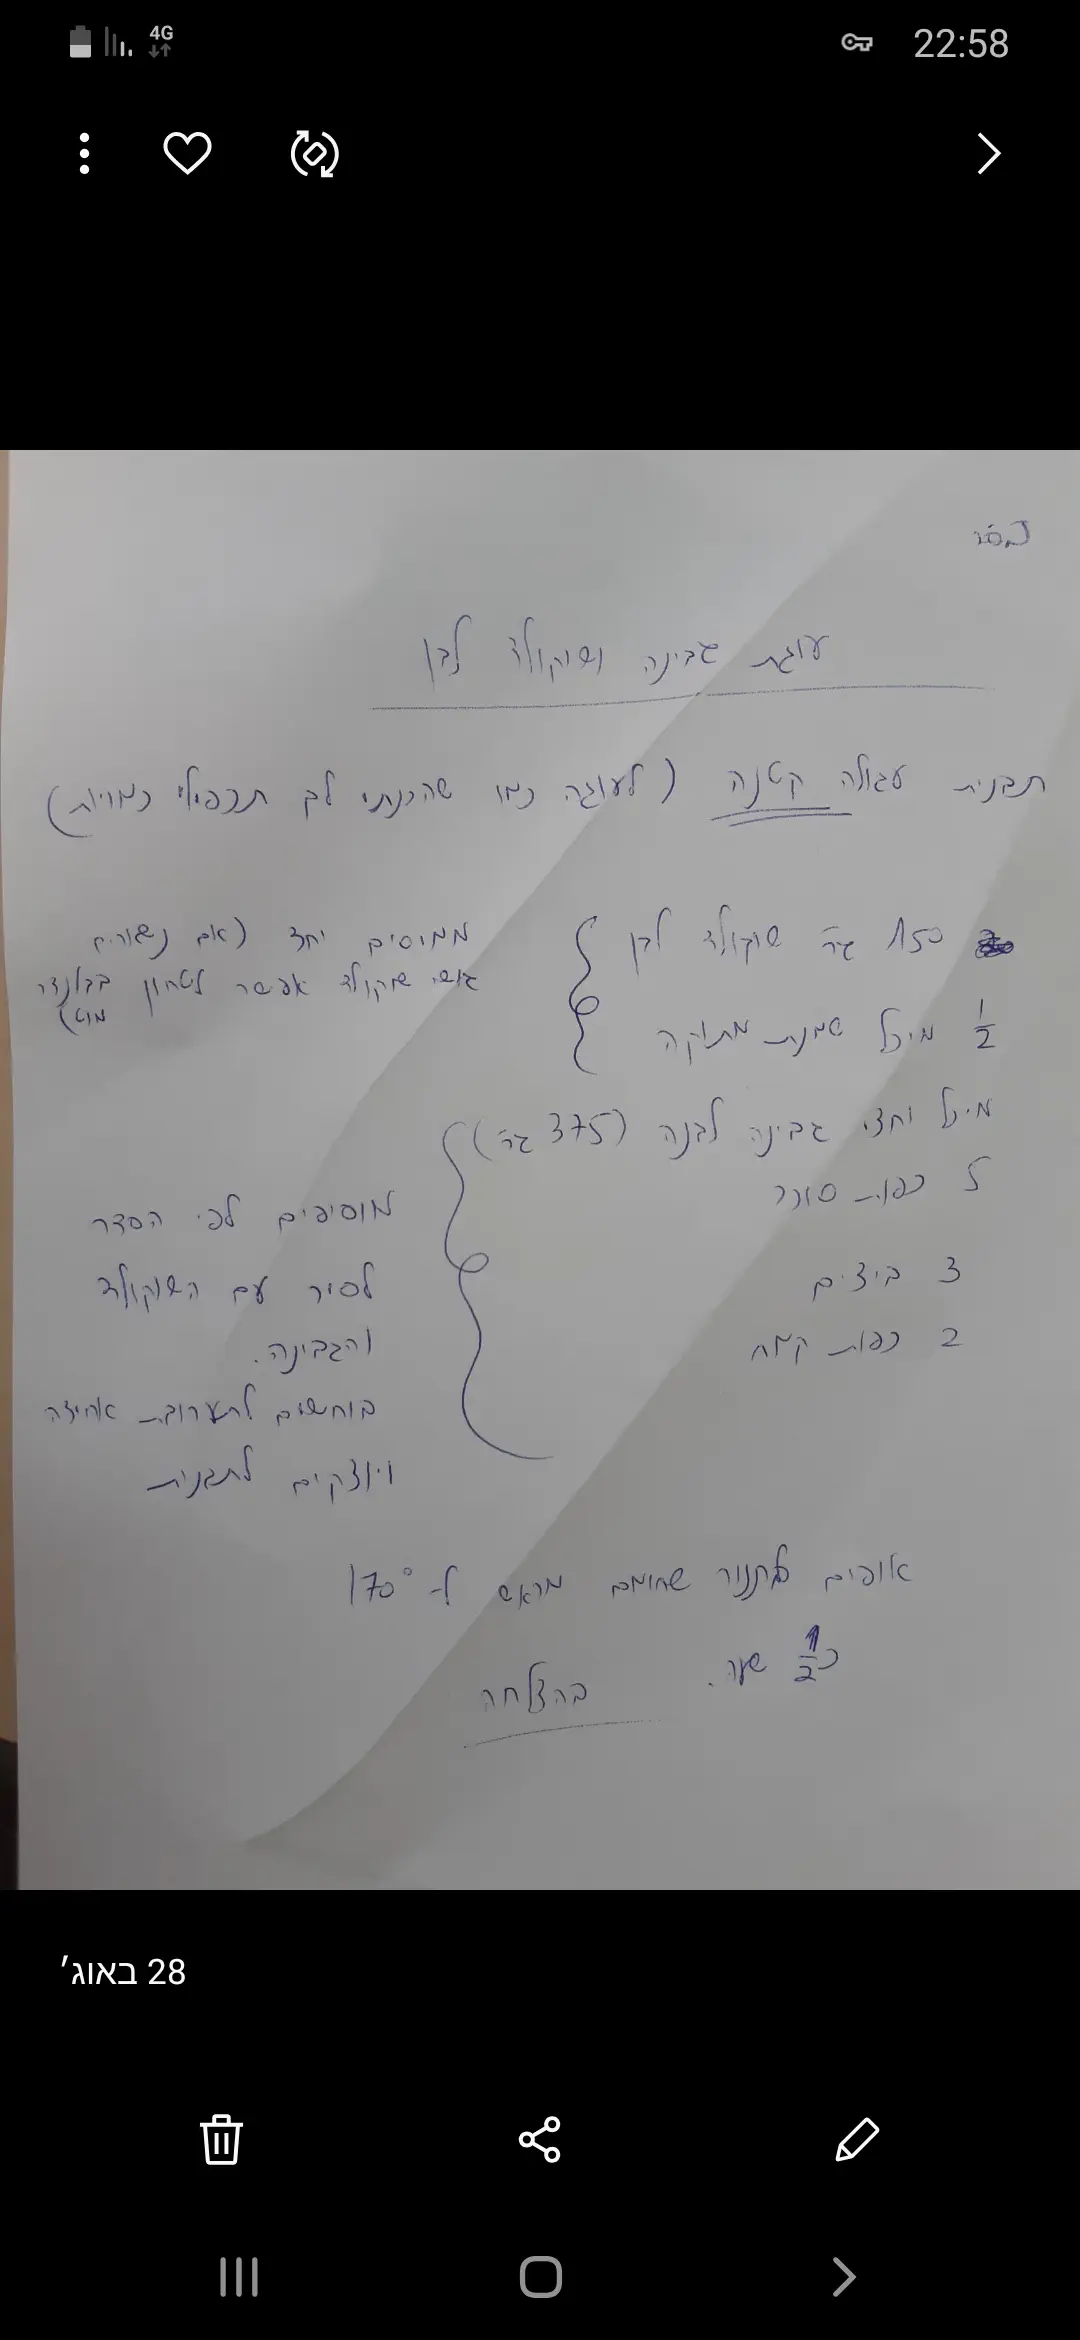 4G
22:58
בס"ד
עוגת גבינה ושוקולד לבן
תבנית עגולה קטנה (לעוגה כמו שהכנתי לך תכפילי כמויות)
150 גר' שוקולד לבן
1/2 מיכל שמנת מתוקה
ממוסים יחד (אם נשארים
גושי שוקולד אפשר לטחון בבלנדר
מוט)
מיכל וחצי גבינה לבנה (375 גר')
5 כפות סוכר
3 ביצים
2 כפות קמח
מוסיפים לפי הסדר
לסיר עם השוקולד
והגבינה.
בוחשים לתערובת אחידה
ויוצקים לתבנית
אופים בתנור שחומם מראש ל-170°
כ 1/2 שעה.
בהצלחה
28 באוג׳